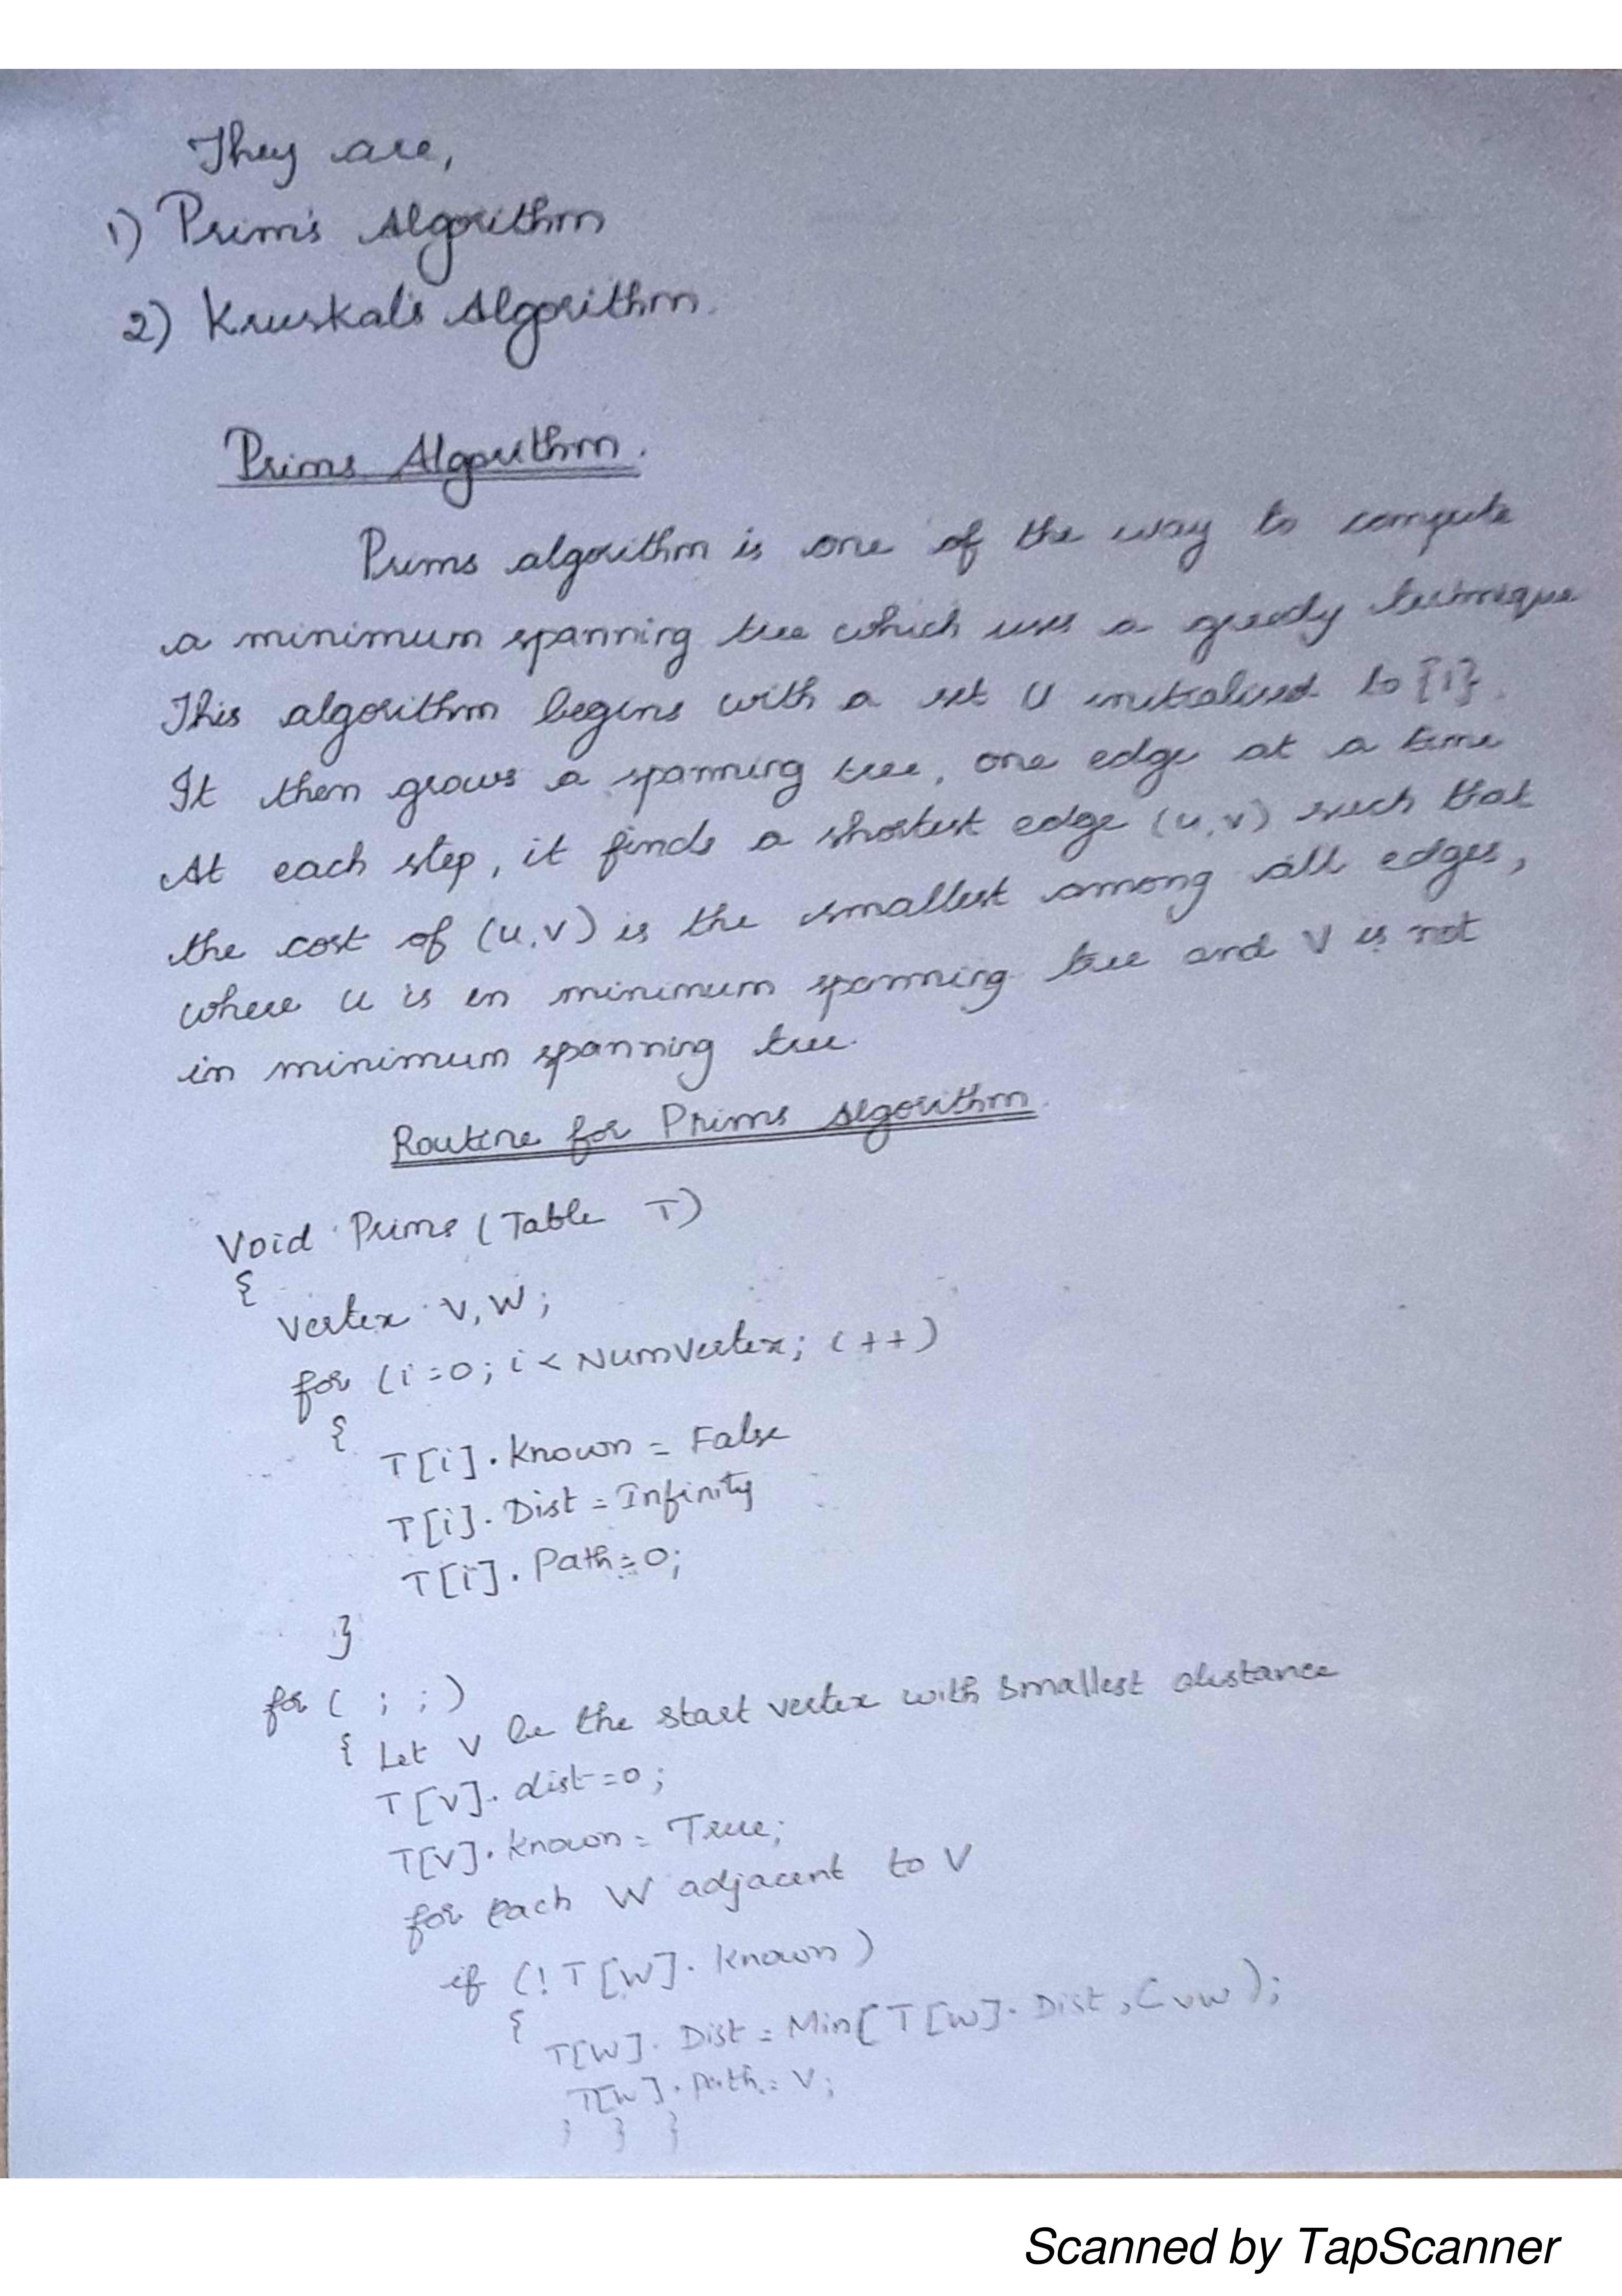 They are,
1) Prim's Algorithm
2) Kruskal's Algorithm.
Prims Algorithm.
Prims algorithm is one of the way to compute
a minimum spanning tree which uses a greedy technique
This algorithm begins with a set U initialised to {1}.
It then grows a spanning tree, one edge at a time
At each step, it finds a shortest edge (u,v) such that
the cost of (u,v) is the smallest among all edges,
where u is in minimum spanning tree and V is not
in minimum spanning tree.
Routine for Prims Algorithm.
Void Prims (Table T)
{
Vertex V, W;
for (i=0; i < NumVertex; i++)
{
T[i]. Known = False
T[i]. Dist = Infinity
T[i]. Path = 0;
}
for ( ; ; )
{ Let V be the start vertex with smallest distance
T[V]. dist = 0;
T[V]. Known = True;
for each W adjacent to V
if (! T[W]. Known )
{
T[W]. Dist = Min[ T[W]. Dist, CVW );
T[W]. Path = V;
} } }
Scanned by TapScanner